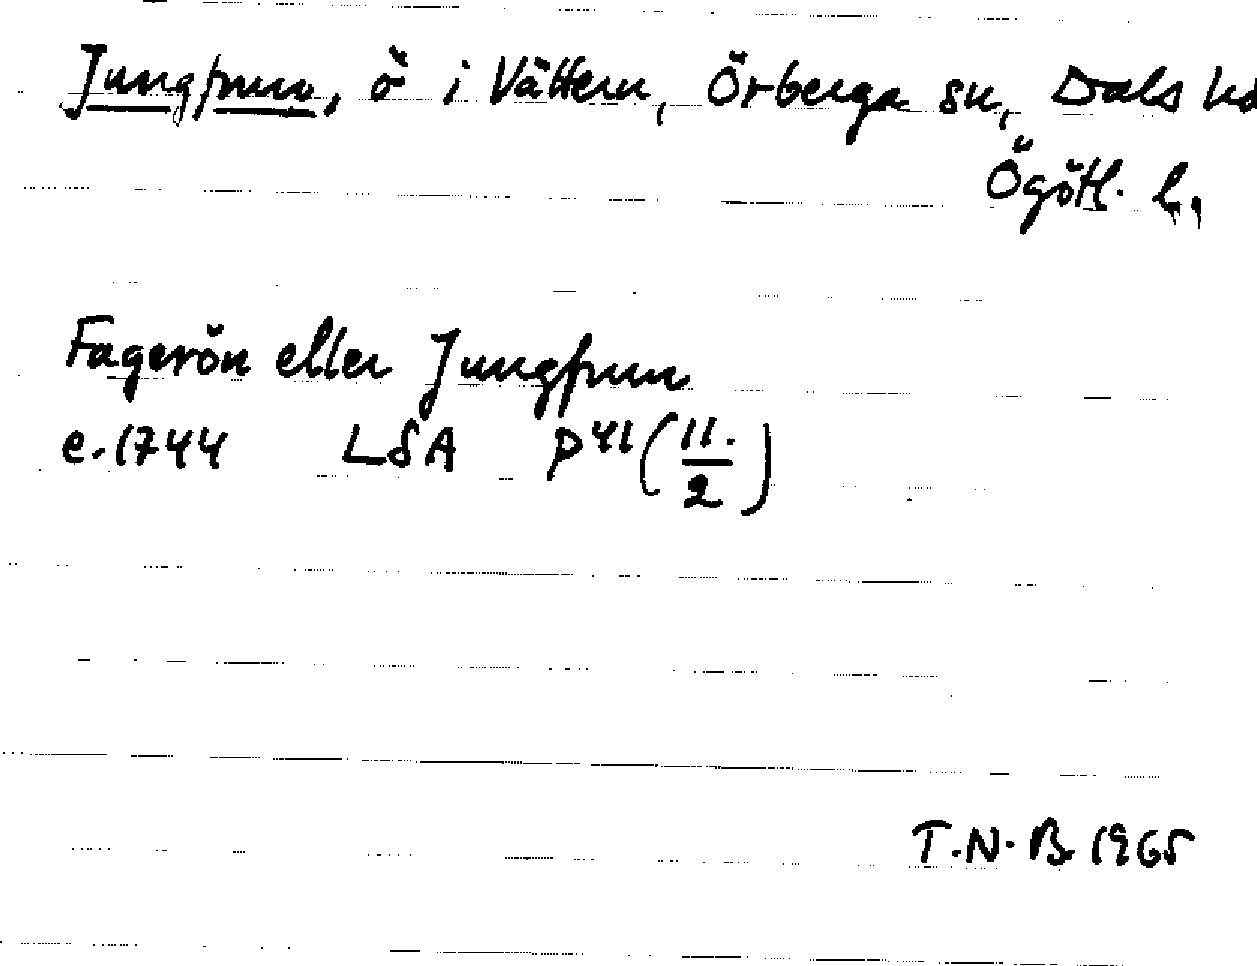 Jungfrun, ö i Vättern, Örberga sn, Dals hd
Ögötl. l.
Fagerön eller Jungfrun
c. 1744 LSA D41 (11./2)
T.N.B 1965